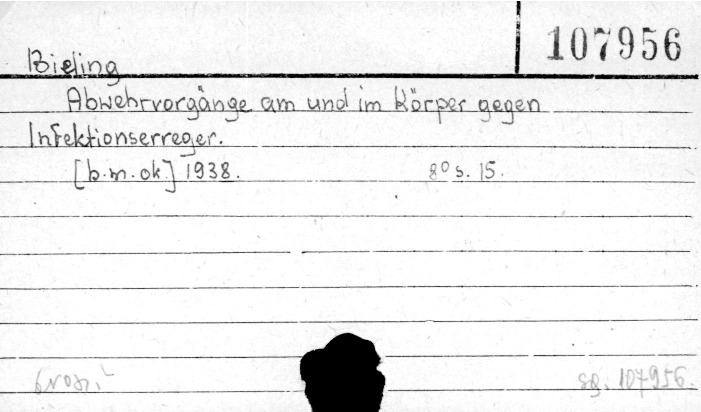 107956
Bieling
Abwehrvorgänge am und im Körper gegen
Infektionserreger.
[b.m.ok.] 1938. 8° s. 15.
107956.